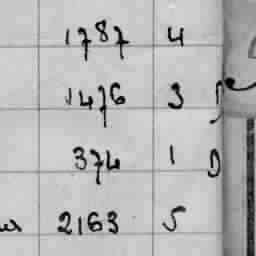 1787 4
1476 3
374 1 D
2163 5